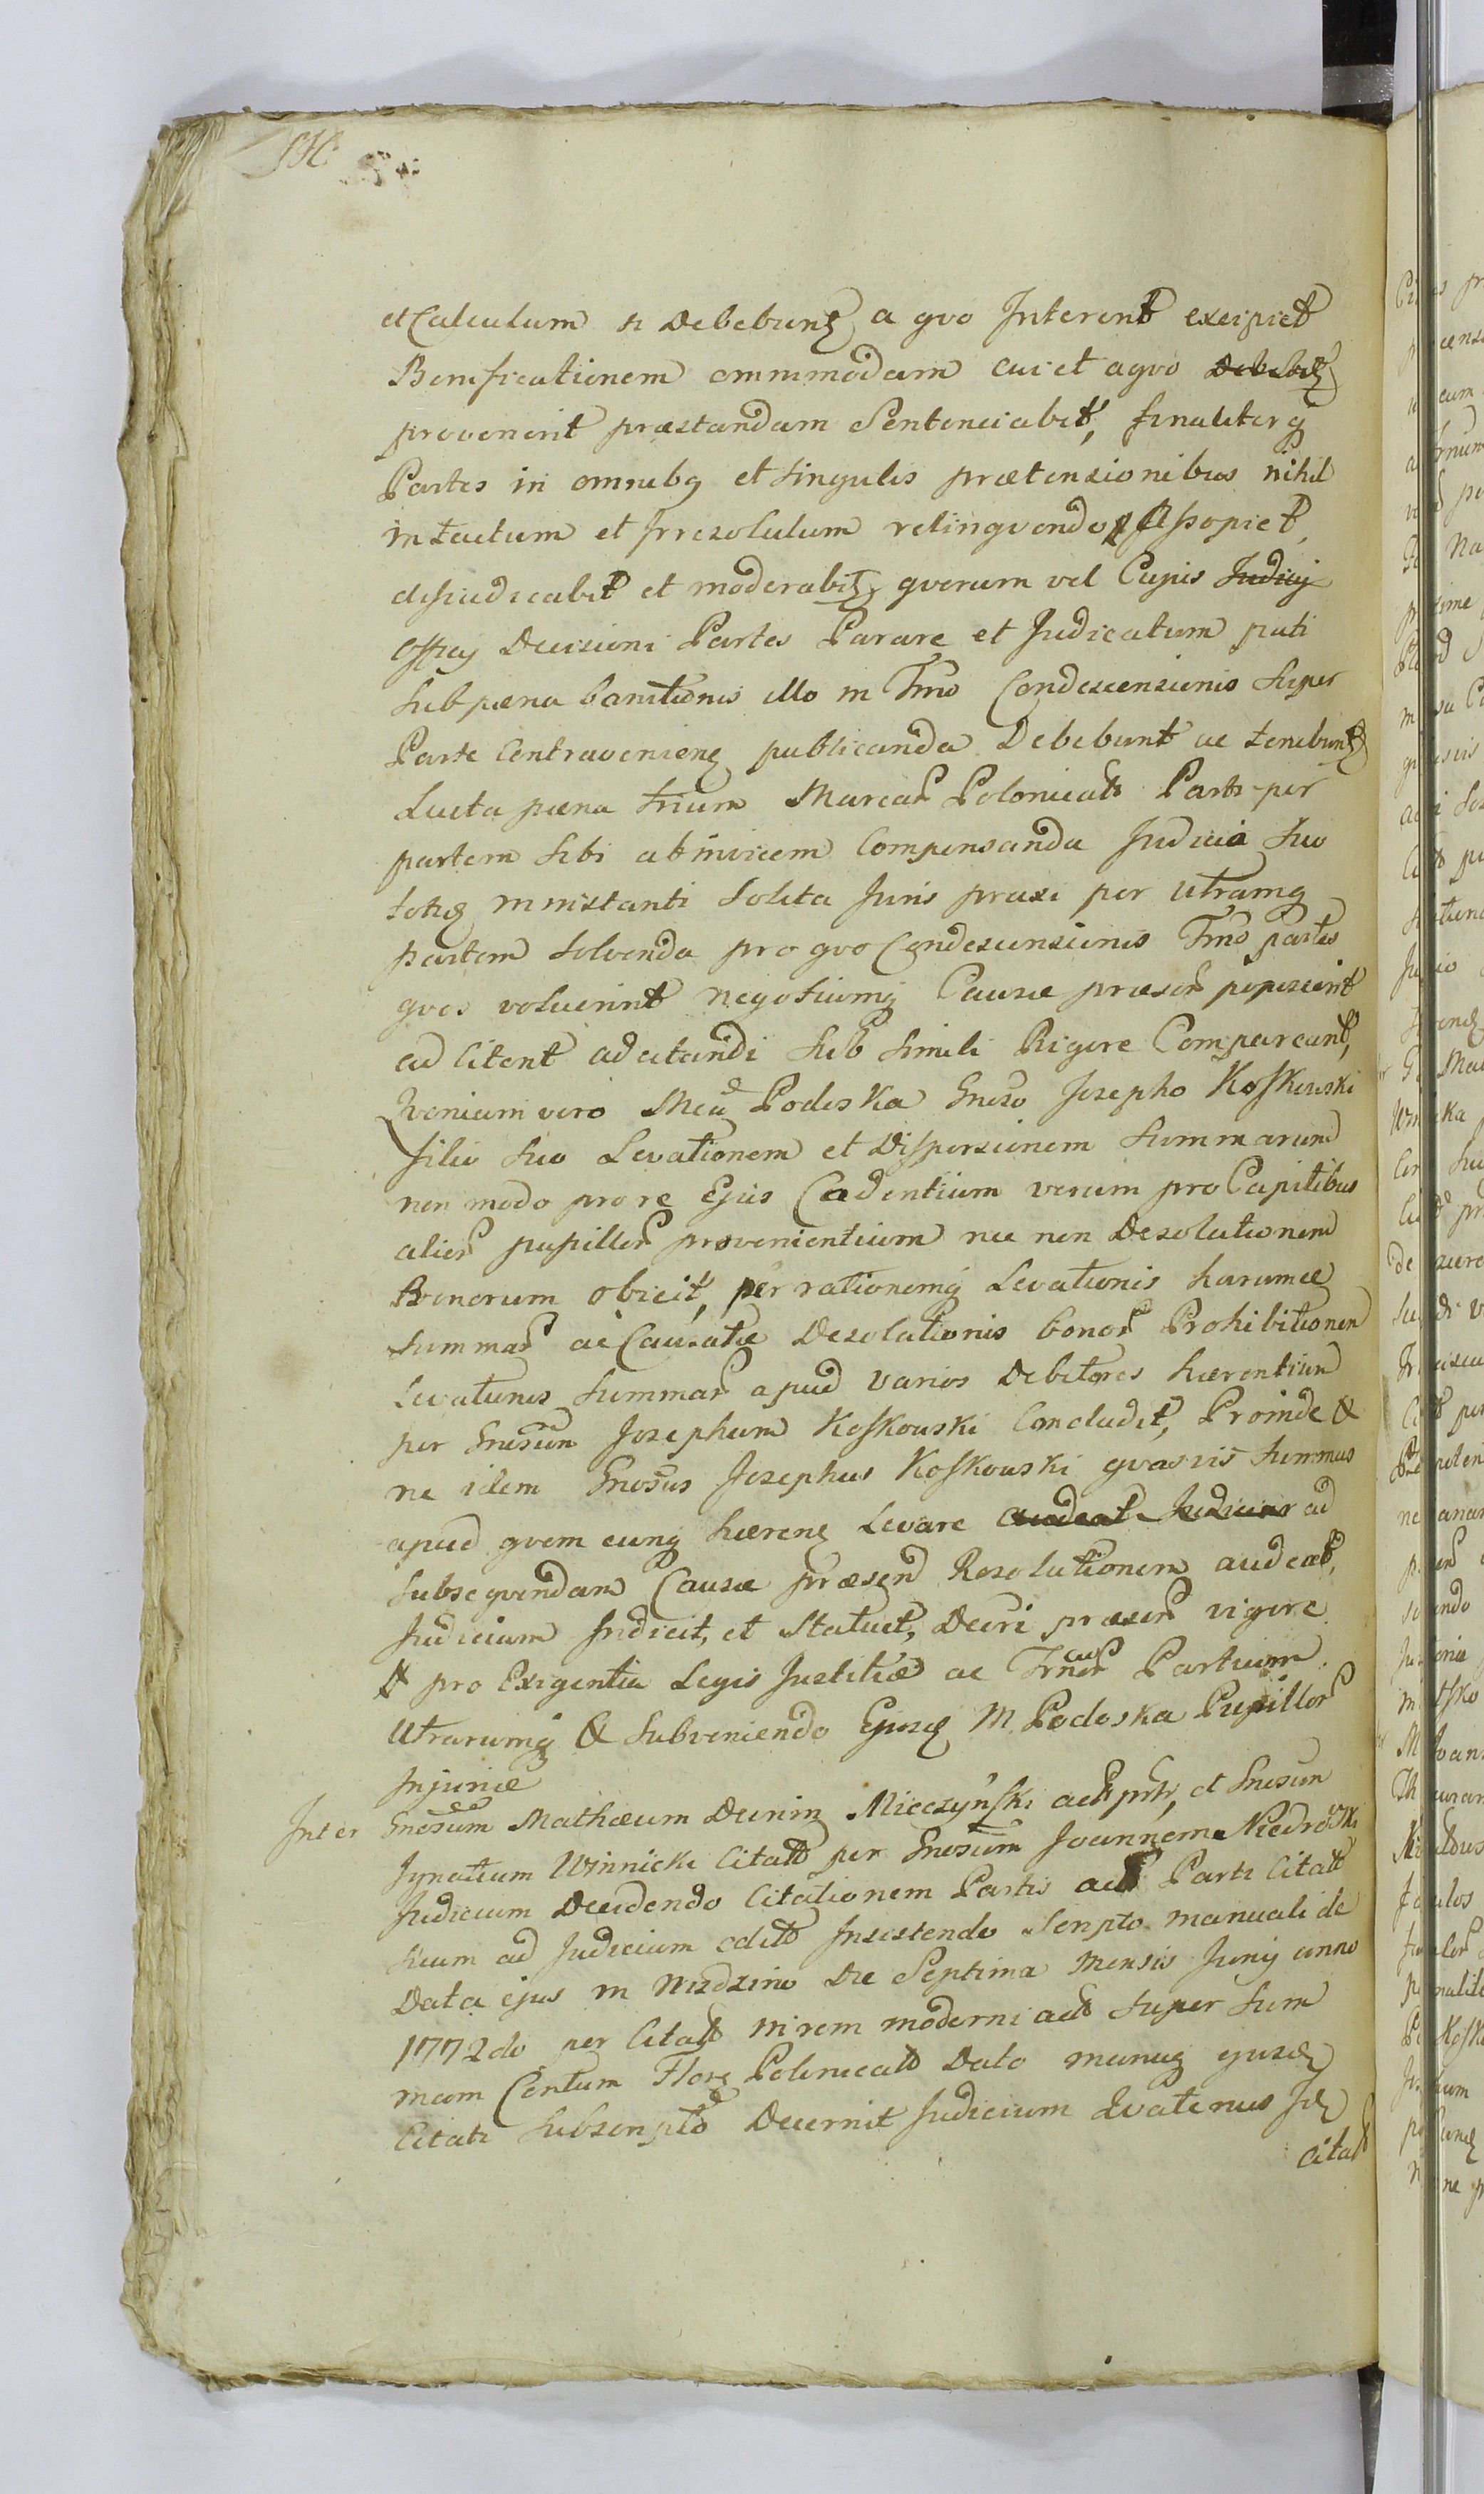 et Calculum si Debebunt, a quo Interent excipiet
Bonificationem ommimodam cui et a quo Debebit
provenerit præstandam Sentenciabit, finaliterq
Partes in omnibq et singulis prætensionibus nihil
intactum et Irresolutum relinquendo Assopiet,
disiudicabit et moderabit, quorum vel Cujus Judicij
Officij Decisioni Partes Parare et Judicatum pati
sub pæna banitionis illo in Tmo Condescensionis super
Parte Contravenienti publicanda Debebunt ac tenebunt
Lucta pæna trium Marcar Polonicalt Parti per
partem sibi ab invicem Compensanda Judicio suo
totiq in instanti solita Juris praxi per Utramq
partem solvenda pro quo Condescensionis Tmo partes
quos voluerint negotiumq Causæ præsen poposcerit
ad Citent adcitandi sub simili Rigore Compareant,
Quoniam vero Mca Podoska Gnoso Josepho Koskowski
filio suo Levationem et Dispersionem summarum
non modo pro re Ejus Cadentium verum pro Capitibus
alior pupillor provenientium nec non Desolationem
Bonorum obicit, per rationemq Levationis harumce
summar ac Causatæ Desolationis bonor Prohibitionem
Levationis summar apud varios Debitores hærentium
per Gnosum Josephum Koskowski Concludit, Proinde &
ne idem Gnosus Josephus Koskowski quasvis summas
apud quem cunq hæren Levare audeat Judicium ad
subsequendam Causæ præsen Resolutionem audeat,
Judicium Indicit, et Statuet, Decri præsen vigore
& pro Exigentia Legis Justitiæ ac Partium
Utrarumq & subveniendo Ejusd M Podoska Pupillor
Injuriæ
Inter Gnosum Mathæum Dunin Mieczyński act et Gnosum
Ignatium Winnicki Citatt per Gnosum Joannem Niedro
Judicium Decidendo Citationem Partis act Parti Citatt
suum ad Judicium editt Insistendo Scripto manuali de
Data ejus in Die Septima Mensis Junij anno
1772do per Citatt in rem moderni act super sum
mam Centum Flor Polonicalt Dato manuq ejusd
Citati subscriptto Decernit Judicium Quatenus Id
Citatt